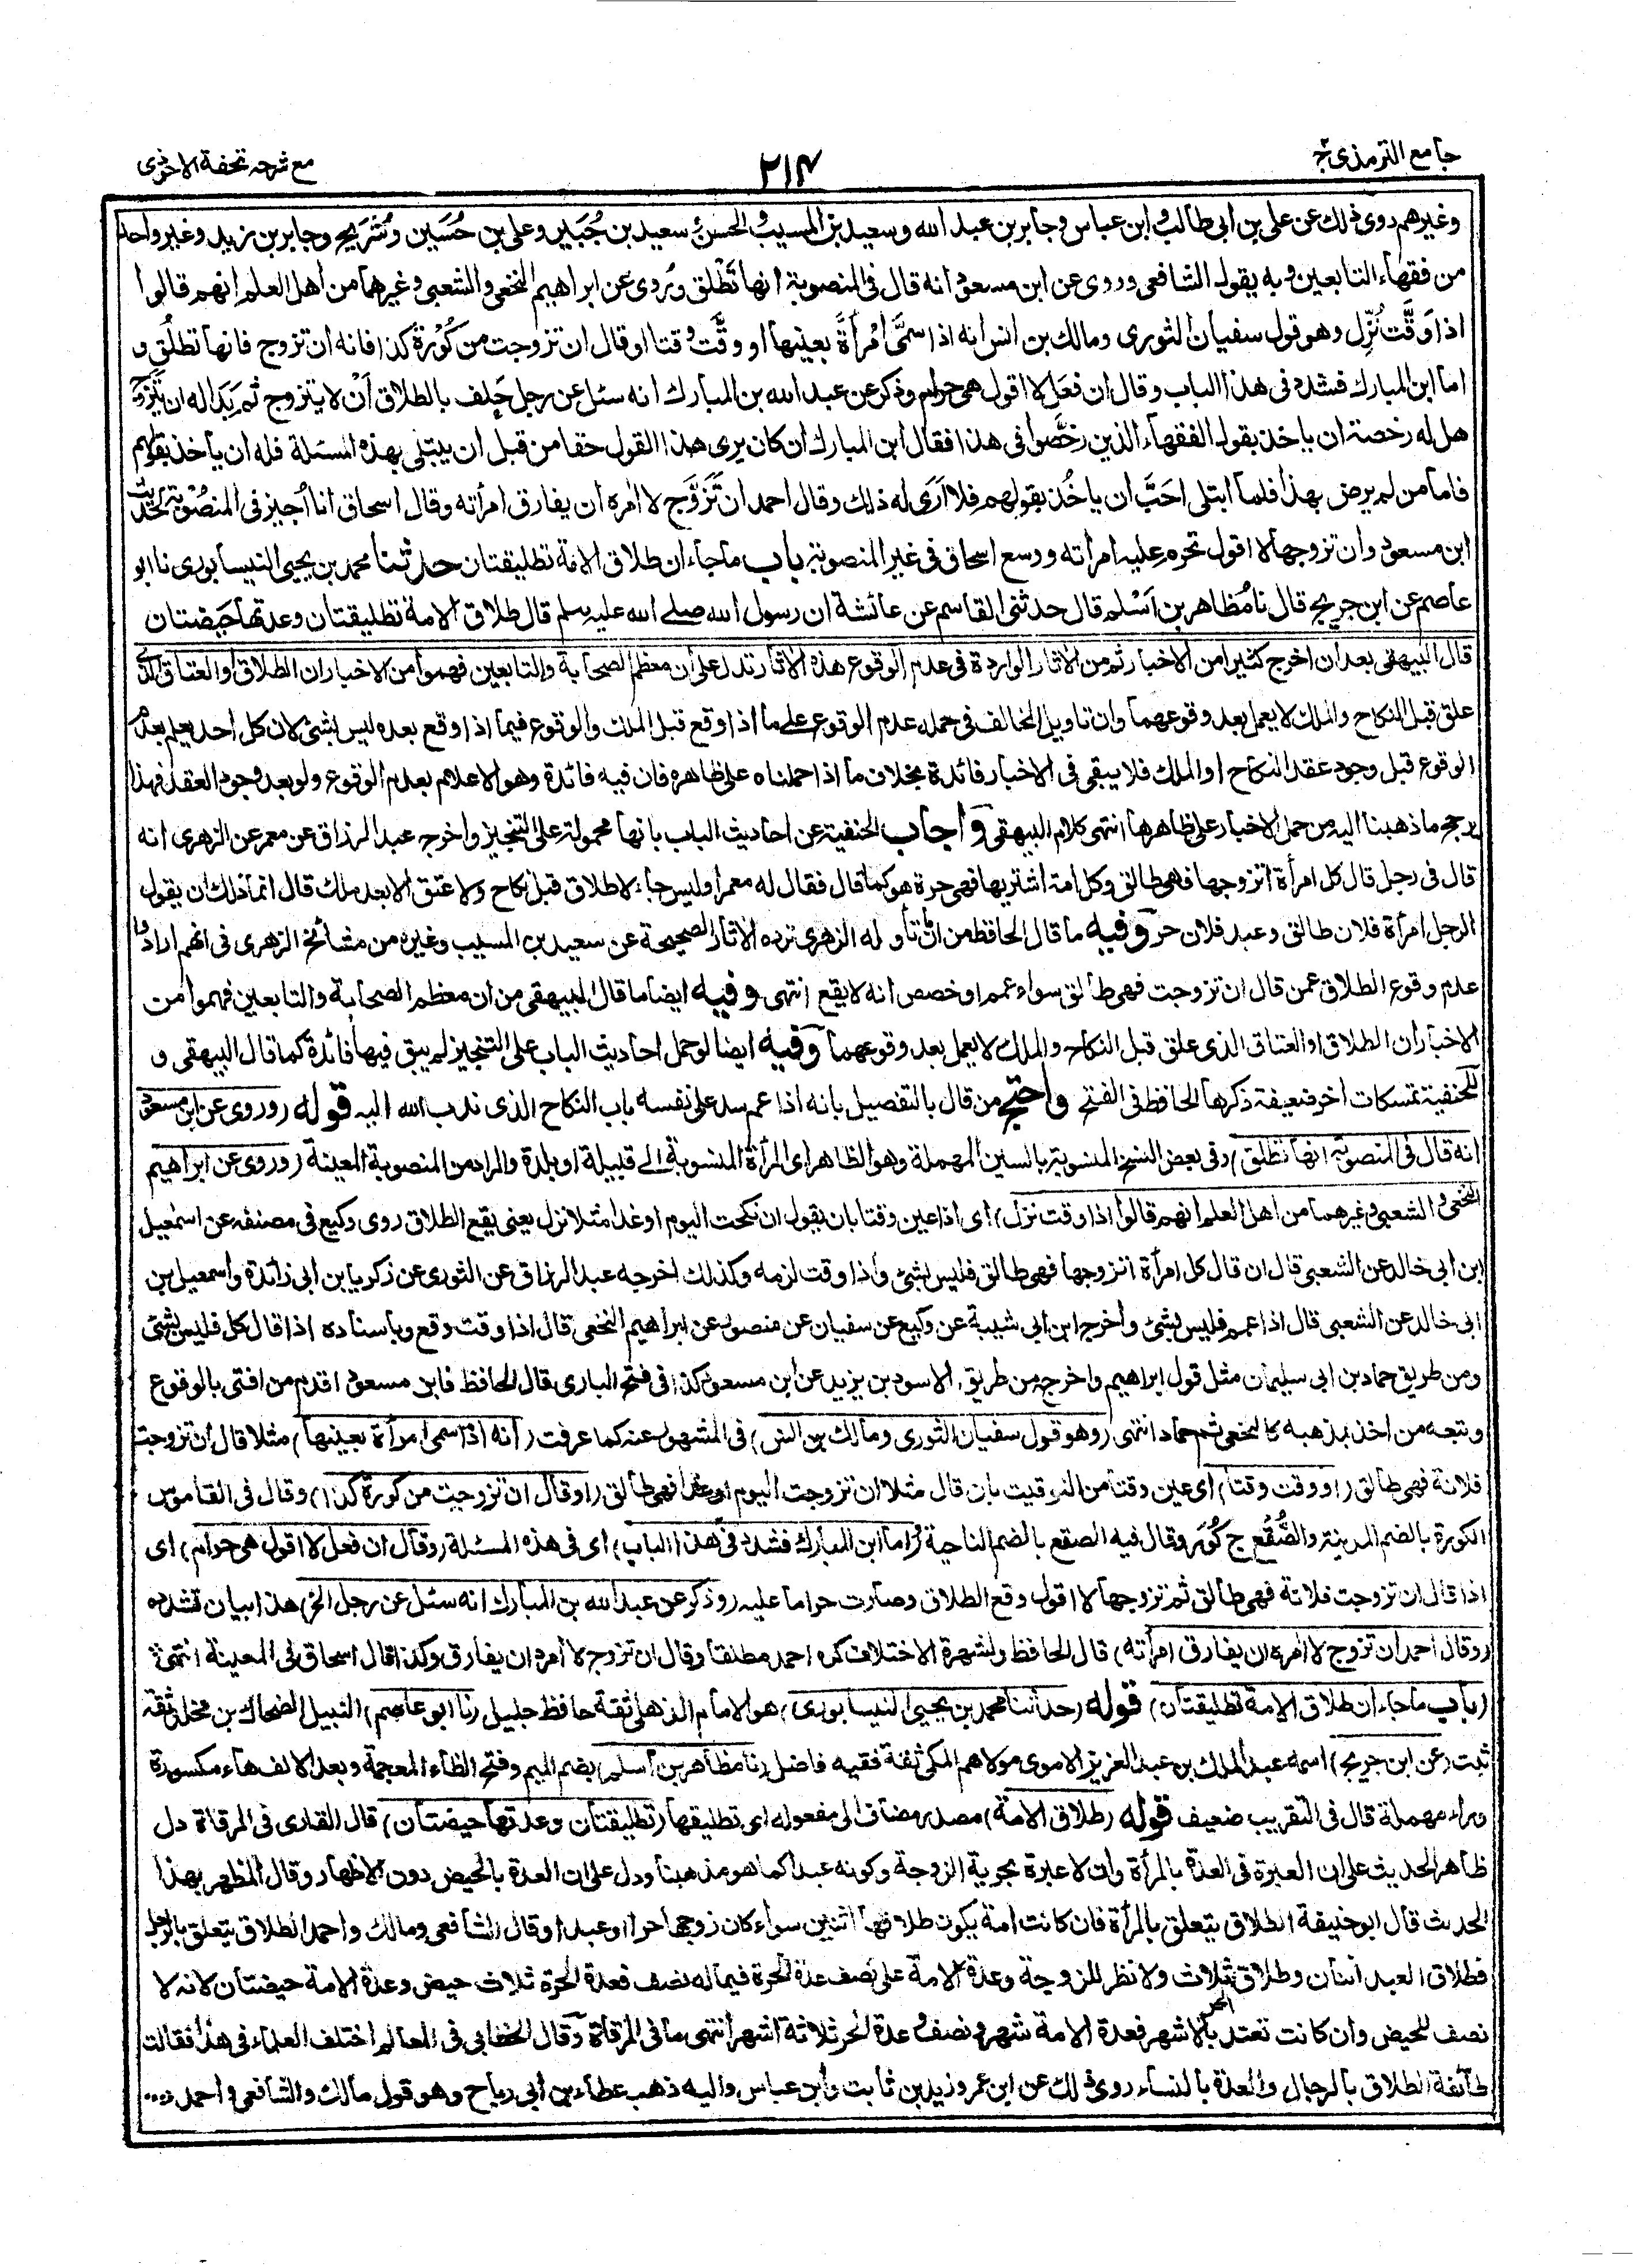 جامع الترمذی ج ۲
۲۱۴
مع شرحه تحفة الاحوذی
وغیرهم روی ذلك عن علی بن ابی طالب و ابن عباس وجابر بن عبد الله وسعید بن المسیب والحسن و سعید بن جُبَیر وعلی بن حُسَین وشُرَیح وجابر بن زید وغیر واحد
من فقهاء التابعین وبه یقول الشافعی وروی عن ابن مسعود انه قال فی المنصوبة انها تَطْلق ورُوی عن ابراهیم النخعی والشعبی وغیرهما من اهل العلم انهم قالوا
اذا وَقَّتَ نُزِّل وهو قول سفیان الثوری ومالك بن انس انه اذا سَمَّی اْمرأةً بعینها او وَقَّتَ وقتا او قال ان تزوجت من كُوْرَة كذا فانه ان تزوج فانها تطلُق و
اما ابن المبارك فشدد فی هذا الباب وقال ان فعَل لا اقول هی حرام وذكر عن عبد الله بن المبارك انه سئل عن رجل حَلف بالطلاق اَنْ لا یتزوج ثم بَدَا له ان یتَزوّج
هل له رخصة ان یاخذ بقول الفقهاء الذین رخَّصوا فی هذا فقال ابن المبارك ان كان یری هذا القول حقا من قبل ان یبتلی بهذه المسئلة فله ان یأخذ بقولهم
فاما من لم یرض بهذا فلما ابتلی احَبَّ ان یاخُذ بقولهم فلا اَرَی له ذلك وقال احمد ان تَزَوَّج لا اٰمره ان یفارق امرأته وقال اسحاق انا اُجیز فی المنصُوْبة لحدیث
ابن مسعود وان تزوجها لا اقول تحرم علیه امرأته ووسع اسحاق فی غیر المنصوبة باب ماجاء ان طلاق الامة تطلیقتان حدثنا محمد بن یحیی النیسابوری نا ابو
عاصم عن ابن جریج قال نا مُظاهر بن اَسْلم قال حدثنی القاسم عن عائشة ان رسول الله صلی الله علیه وسلم قال طلاق الامة تطلیقتان وعدتها حَیضتان
قال البیهقی بعد ان اخرج كثیرا من الاخبار ثم من الاثار الواردة فی عدم الوقوع هذه الاثار تدل علی ان معظم الصحابة والتابعین فهموا من الاخبار ان الطلاق او العتاق الذی
علق قبل النكاح والملك لا یعمل بعد وقوعهما وان تاویل المخالف فی حمله عدم الوقوع علی ما اذا وقع قبل الملك والوقوع فیما اذا وقع بعده لیس بشئ لان كل احد یعلم بعدم
الوقوع قبل وجود عقد النكاح او الملك فلا یبقی فی الاخبار فائدة بخلاف ما اذا حملناه علی ظاهره فان فیه فائدة وهو الاعلام بعدم الوقوع ولو بعد وجود العقد فهذا
یرجح ما ذهبنا الیه من حمل الاخبار علی ظاهرها انتهی كلام البیهقی واجاب الحنفیة عن احادیث الباب بانها محمولة علی التنجیز واخرجه عبد الرزاق عن معمر عن الزهری انه
قال فی رجل قال كل امرأة اتزوجها فهی طالق وكل امة اشتریها فهی حرة هو كما قال فقال له معمر اولیس جاء لا طلاق قبل نكاح ولا عتق الا بعد ملك قال انما ذلك ان یقول
الرجل امرأة فلان طالق وعبد فلان حر وفیه ما قال الحافظ من ان ما تأوله الزهری ترده الاثار الصحیحة عن سعید بن المسیب وغیره من مشائخ الزهری فی انهم ارادوا
عدم وقوع الطلاق عمن قال ان تزوجت فهی طالق سواء عمم او خصص انه لا یقع انتهی وفیه ایضا ما قال البیهقی من ان معظم الصحابة والتابعین فهموا من
الاخبار ان الطلاق او العتاق الذی علق قبل النكاح والملك لا یعمل بعد وقوعهما وفیه ایضا لو حمل احادیث الباب علی التنجیز لم یبق فیها فائدة كما قال البیهقی و
للحنفیة تمسكات اخر ضعیفة ذكرها الحافظ فی الفتح واحتج من قال بالتفصیل بانه اذا عم سد علی نفسه باب النكاح الذی ندب الله الیه قوله (وروی عن ابن مسعود
انه قال فی المنصوبة انها تطلق) وفی بعض النسخ المنسوبة بالسین المهملة وهو الظاهر ای المرأة المنسوبة الی قبیلة او بلدة والمراد من المنصوبة المعینة (وروی عن ابراهیم
النخعی والشعبی وغیرهما من اهل العلم انهم قالوا اذا وقت نزل) ای اذا عین وقتا بان یقول ان نكحت الیوم او غدا مثلا نزل یعنی یقع الطلاق روی وكیع فی مصنفه عن اسمٰعیل
ابن ابی خالد عن الشعبی قال ان قال كل امرأة اتزوجها فهی طالق فلیس بشئ واذا وقت لزمه وكذلك اخرجه عبد الرزاق عن الثوری عن زكریا بن ابی زائدة واسمعیل بن
ابی خالد عن الشعبی قال اذا عمم فلیس بشئ واخرج ابن ابی شیبة عن وكیع عن سفیان عن منصور عن ابراهیم النخعی قال اذا وقت وقع وباسناده اذا قال كل فلیس بشئ
ومن طریق حماد بن ابی سلیمان مثل قول ابراهیم واخرجه من طریق الاسود بن یزید عن ابن مسعود كذا فی فتح الباری قال الحافظ فابن مسعود اقدم من افتی بالوقوع
وتبعه من اخذ بمذهبه كالنخعی ثم حماد انتهی (وهو قول سفیان الثوری ومالك بن انس) فی المشهور عنه كما عرفت (انه اذا سمی امرأة بعینها) مثلا قال ان تزوجت
فلانة فهی طالق (او وقت وقتا) ای عین وقتا من التوقیت بان قال مثلا ان تزوجت الیوم او غدا فهی طالق (او قال ان تزوجت من كورة كذا) وقال فی القاموس
الكورة بالضم المدینة والصُّقْع ج كُوَر وقال فیه الصقع بالضم الناحیة (واما ابن المبارك فشدد فی هذا الباب) ای فی هذه المسئلة (وقال ان فعل لا اقول هی حرام) ای
اذا قال ان تزوجت فلانة فهی طالق ثم تزوجها لا اقول وقع الطلاق وصارت حراما علیه (وذكر عن عبد الله بن المبارك انه سئل عن رجل الخ) هذا بیان تشدده
(وقال احمد ان تزوج لا اٰمره ان یفارق امرأته) قال الحافظ ولشهرة الاختلاف كره احمد مطلقا وقال ان تزوج لا آمره ان یفارق وكذا قال اسحاق فی المعینة انتهی
(باب ماجاء ان طلاق الامة تطلیقتان) قوله (حدثنا محمد بن یحیی النیسابوری) هو الامام الذهلی ثقة حافظ جلیل (نا ابو عاصم) النبیل الضحاك بن مخلد ثقة
ثبت (عن ابن جریج) اسمه عبد الملك بن عبد العزیز الاموی مولاهم المكی ثقة فقیه فاضل (نا مظاهر بن أسلم) بضم المیم وفتح الظاء المعجمة وبعد الالف هاء مكسورة
وراء مهملة قال فی التقریب ضعیف قوله (طلاق الامة) مصدر مضاف الی مفعوله ای تطلیقها (تطلیقتان وعدتها حیضتان) قال القاری فی المرقاة دل
ظاهر الحدیث علی ان العبرة فی العدة بالمرأة وان لا عبرة بحریة الزوجة وكونه عبدا كما هو مذهبنا ودل علی ان العدة بالحیض دون الاظهار وقال المظهر بهذا
الحدیث قال ابو حنیفة الطلاق یتعلق بالمرأة فان كانت امة یكون طلاقها اثنین سواء كان زوجها حرا او عبدا وقال الشافعی ومالك واحمد الطلاق یتعلق بالرجل
فطلاق العبد اثنان وطلاق الحر ثلاث ولا نظر للزوجة وعدة الامة علی نصف عدة الحرة فیما له نصف فعدة الحرة ثلاث حیض وعدة الامة حیضتان لانه لا
نصف للحیض وان كانت تعتد بالاشهر فعدة الامة شهر ونصف وعدة الحر ثلاثة اشهر انتهی ما فی المرقاة وقال الخطابی فی المعالم اختلف العلماء فی هذا فقالت
طائفة الطلاق بالرجال والعدة بالنساء روی ذلك عن ابن عمر وزید بن ثابت وابن عباس والیه ذهب عطاء بن ابی رباح وهو قول مالك والشافعی واحمد و